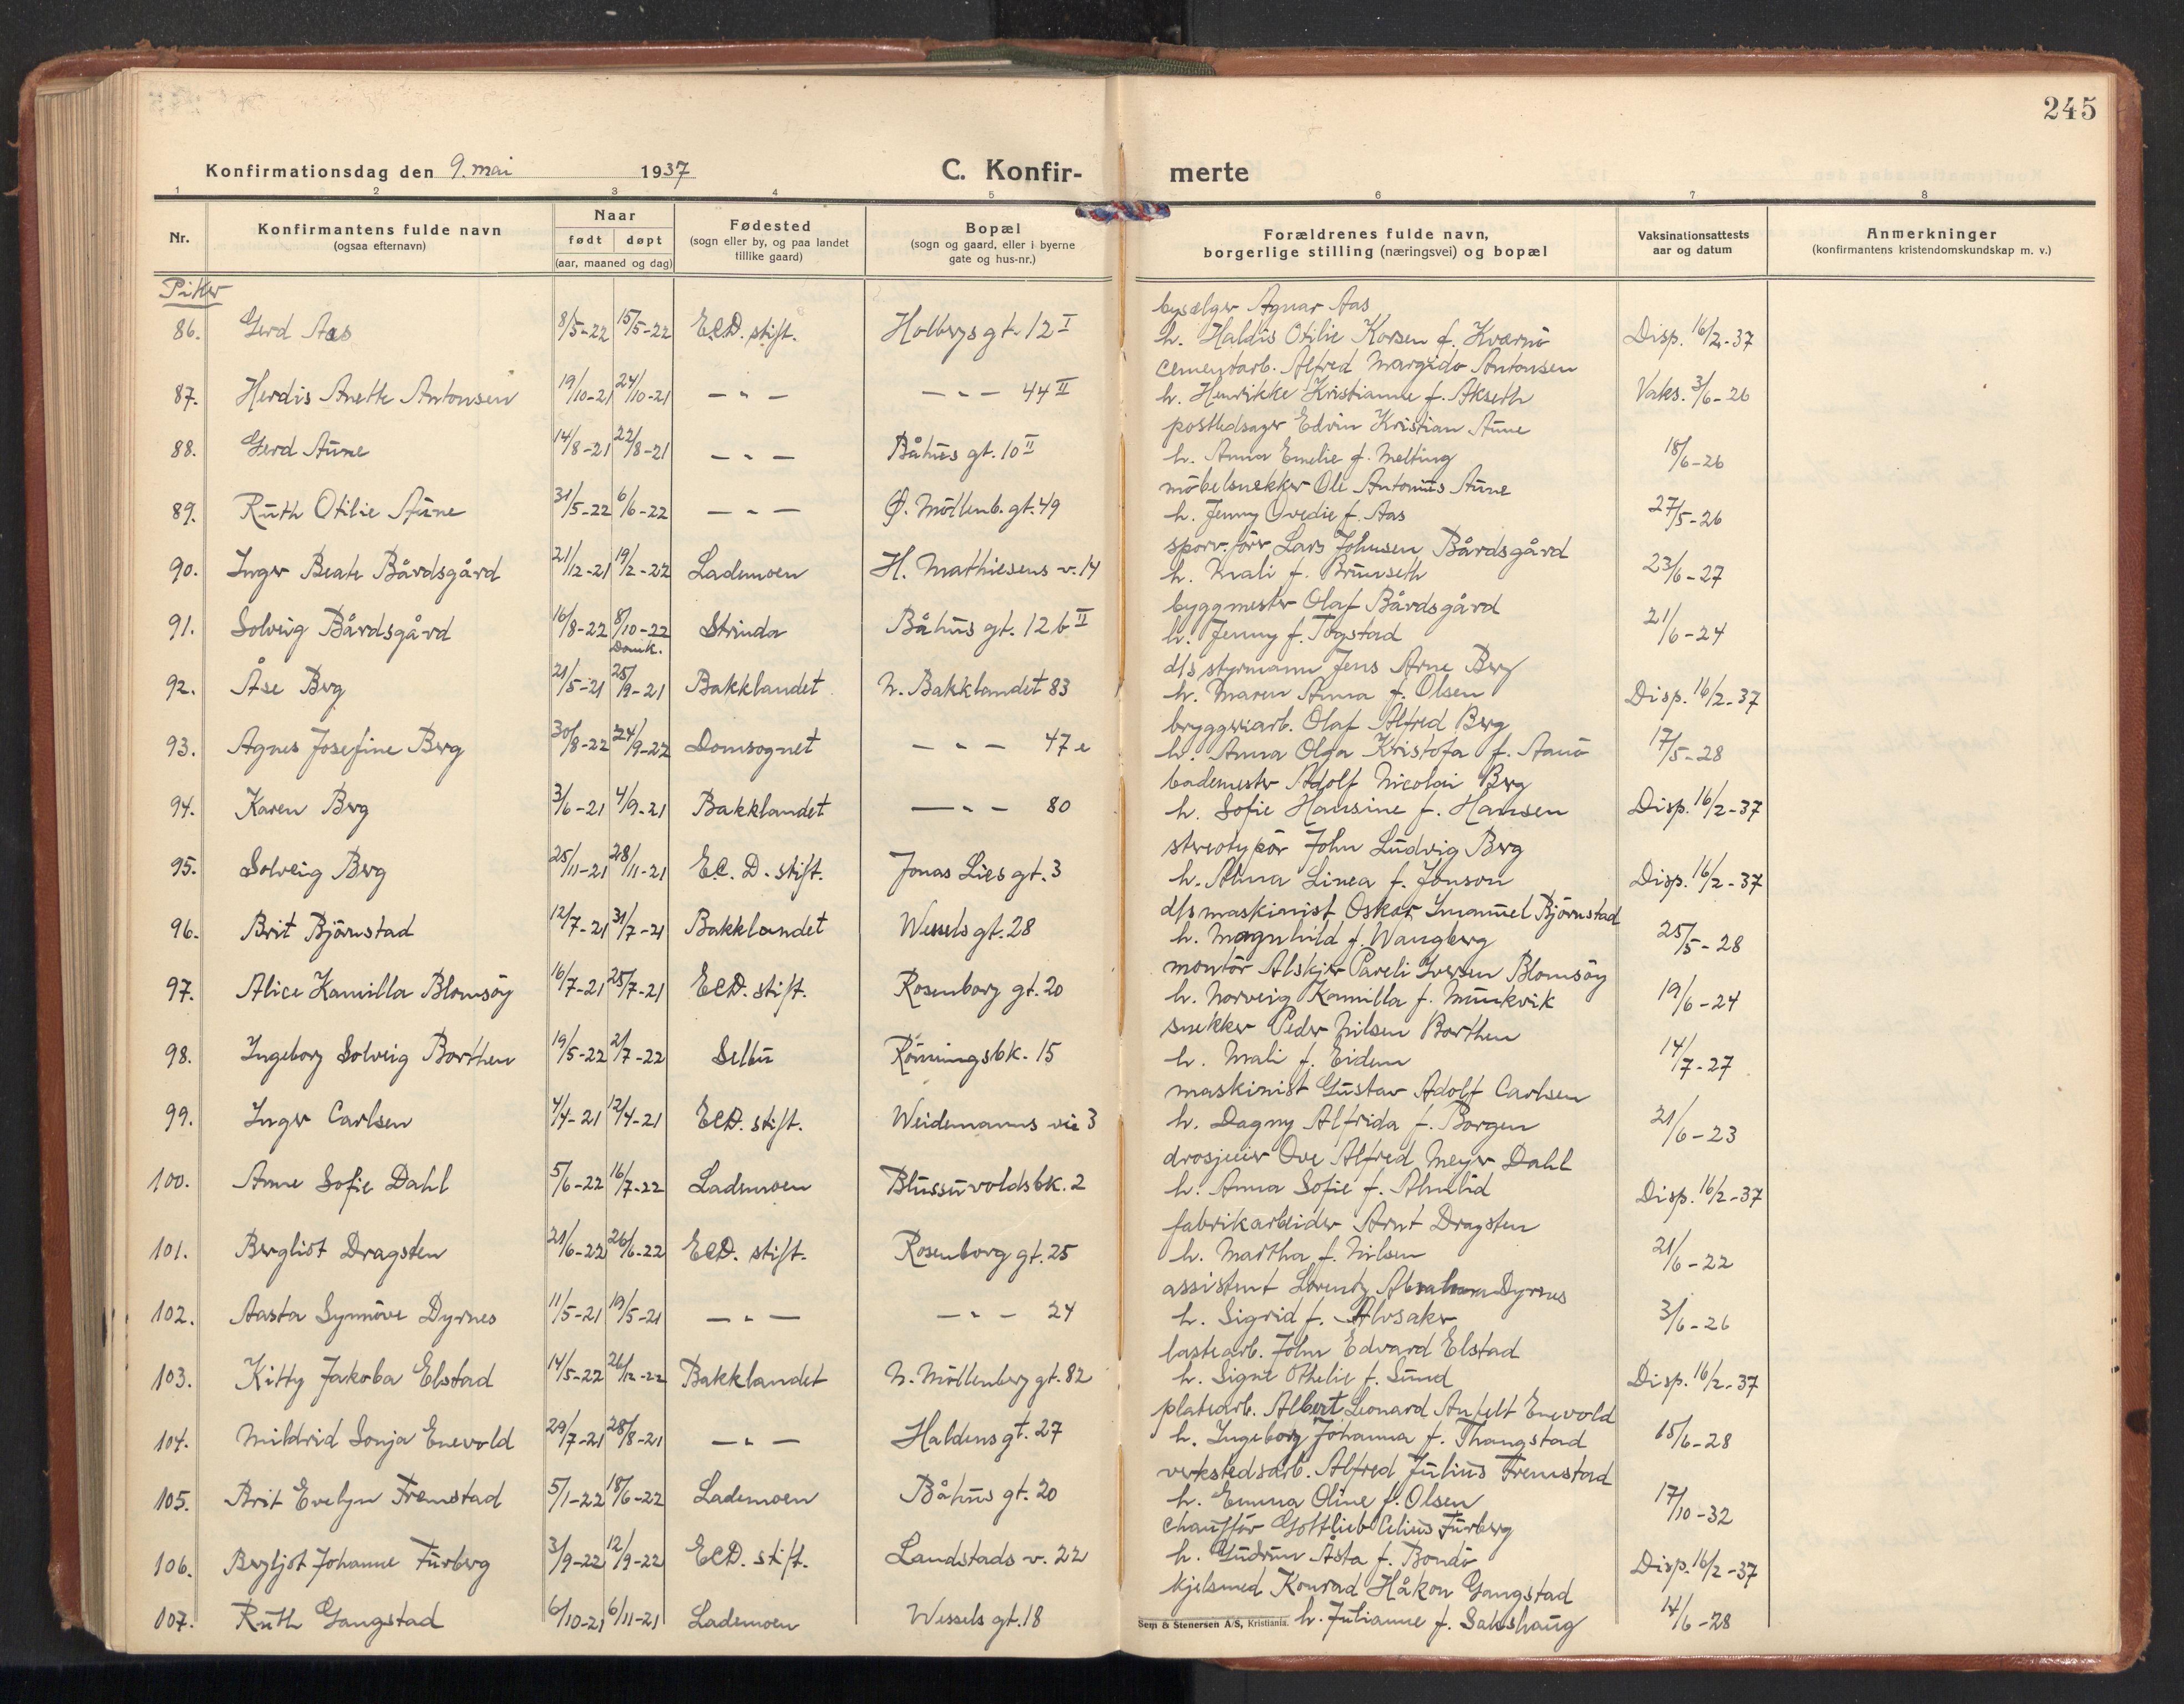 245
Konfirmationsdag den 9. mai 1937 C. Konfir- merte
1 2 3 4 5 6 7 8
Nr. Konfirmantens fulde navn (ogsaa efternavn) Naar født døpt (aar, maaned og dag) Fødested (sogn eller by, og paa landet tillike gaard) Bopæl (sogn og gaard, eller i byerne gate og hus-nr.) Forældrenes fulde navn, borgerlige stilling (næringsvei) og bopæl Vaksinationsattests aar og datum Anmerkninger (konfirmantens kristendomskundskap m. v.)
Piker
bysælger Agnar Aas
86. Gerd Aas 8/5-22 15/5-22 E.C.D. stift. Holbergs gt. 12 I h. Haldis Otilie Korsen f. Kværnö Disp. 16/2-37
cementarb. Alfred Margido Antonsen
87. Herdis Anette Antonsen 19/10-21 24/10-21 — " — — " — 44 II h. Henrikke Kristianne f. Akseth Vaks. 3/6-26
postledsager Edvin Kristian Aune
88. Gerd Aune 14/8-21 22/8-21 — " — Båhus gt. 10 II h. Anna Emelie f. Melting 18/6-26
möbelsnekker Ole Antonius Aune
89. Ruth Otilie Aune 31/5-22 6/6-22 — " — Ø. Möllenb. gt. 49 h. Jenny Ovedie f. Aas 27/5-26
sporv. förer Lars Johnsen Bårdsgård
90. Inger Beate Bårdsgård 21/12-21 19/2-22 Lademoen H. Mathiesens v. 14 h. Mali f. Brunseth 23/6-27
byggmester Olaf Bårdsgård
91. Solveig Bårdsgård 16/8-22 8/10-22 Strinda Båhus gt. 12 b II h. Jenny f. Togstad 21/6-24
Domk.
d/s styrmann Jens Arne Berg
92. Åse Berg 21/5-21 25/9-21 Bakklandet N. Bakklandet 83 h. Maren Anna f. Olsen Disp. 16/2-37
bryggeriarb. Olaf Alfred Berg
93. Agnes Josefine Berg 30/8-22 24/9-22 Domsognet — " — 47 e h. Anna Olga Kristofa f. Aunö 17/5-28
bademester Adolf Nicolai Berg
94. Karen Berg 3/6-21 4/9-21 Bakklandet — " — 80 h. Sofie Hansine f. Hansen Disp. 16/2-37
stereotypör John Ludvig Berg
95. Solveig Berg 25/11-21 28/11-21 E.C.D. stift. Jonas Lies gt. 3 h. Alma Linea f. Jonson Disp. 16/2-37
d/s maskinist Oskar Imanuel Björnstad
96. Brit Björnstad 12/7-21 31/7-21 Bakklandet Wessels gt. 28 h. Magnhild f. Wangberg 25/5-28
montör Alskjer Pareli Iversen Blomsöy
97. Alice Kamilla Blomsöy 16/7-21 25/7-21 E.C.D. stift. Rosenborg gt. 20 h. Norveig Kamilla f. Munkvik 19/6-24
snekker Peder Nilsen Borthen
98. Ingeborg Solveig Borthen 19/5-22 2/7-22 Selbu Rönningsbk. 15 h. Mali f. Eidem 14/7-27
maskinist Gustav Adolf Carlsen
99. Inger Carlsen 4/4-21 12/4-21 E.C.D. stift. Weidemanns vei 3 h. Dagny Alfrida f. Borgen 21/6-23
drosjeeier Ove Alfred Meyer Dahl
100. Anne Sofie Dahl 5/6-22 16/7-22 Lademoen Blussuvoldsbk. 2 h. Anna Sofie f. Almlid Disp. 16/2-37
fabrikarbeider Arnt Dragsten
101. Bergliot Dragsten 21/6-22 26/6-22 E.C.D. stift. Rosenborg gt. 25 h. Martha f. Nilsen 21/6-22
assistent Lorentz Abraham Dyrnes
102. Aasta Synnöve Dyrnes 11/5-21 19/5-21 — " — — " — 24 h. Sigrid f. Alvsaker 3/6-26
lastearb. John Edvard Elstad
103. Kitty Jakoba Elstad 14/5-22 26/12-22 Bakklandet N. Möllenberg gt. 82 h. Signe Othelie f. Sund Disp. 16/2-37
platearb. Albert Leonard Anfelt Enevold
104. Mildrid Sonja Enevold 29/7-21 28/8-21 — " — Haldens gt. 27 h. Ingeborg Johanna f. Thangstad 15/6-28
verkstedsarb. Alfred Julius Fremstad
105. Brit Evelyn Fremstad 5/1-22 18/6-22 Lademoen Båhus gt. 20 h. Emma Oline f. Olsen 17/10-32
chaufför Gottlieb Celius Furberg
106. Bergljot Johanne Furberg 3/9-22 12/9-22 E.C.D. stift. Landstads v. 22 h. Gudrun Åsta f. Bondö Disp. 16/2-37
kjelsmed Konrad Håkon Gangstad
107. Ruth Gangstad 6/10-21 6/11-21 Lademoen Wessels gt. 18 h. Julianne f. Sakshaug 14/6-28
Sem & Stenersen A/S, Kristiania.